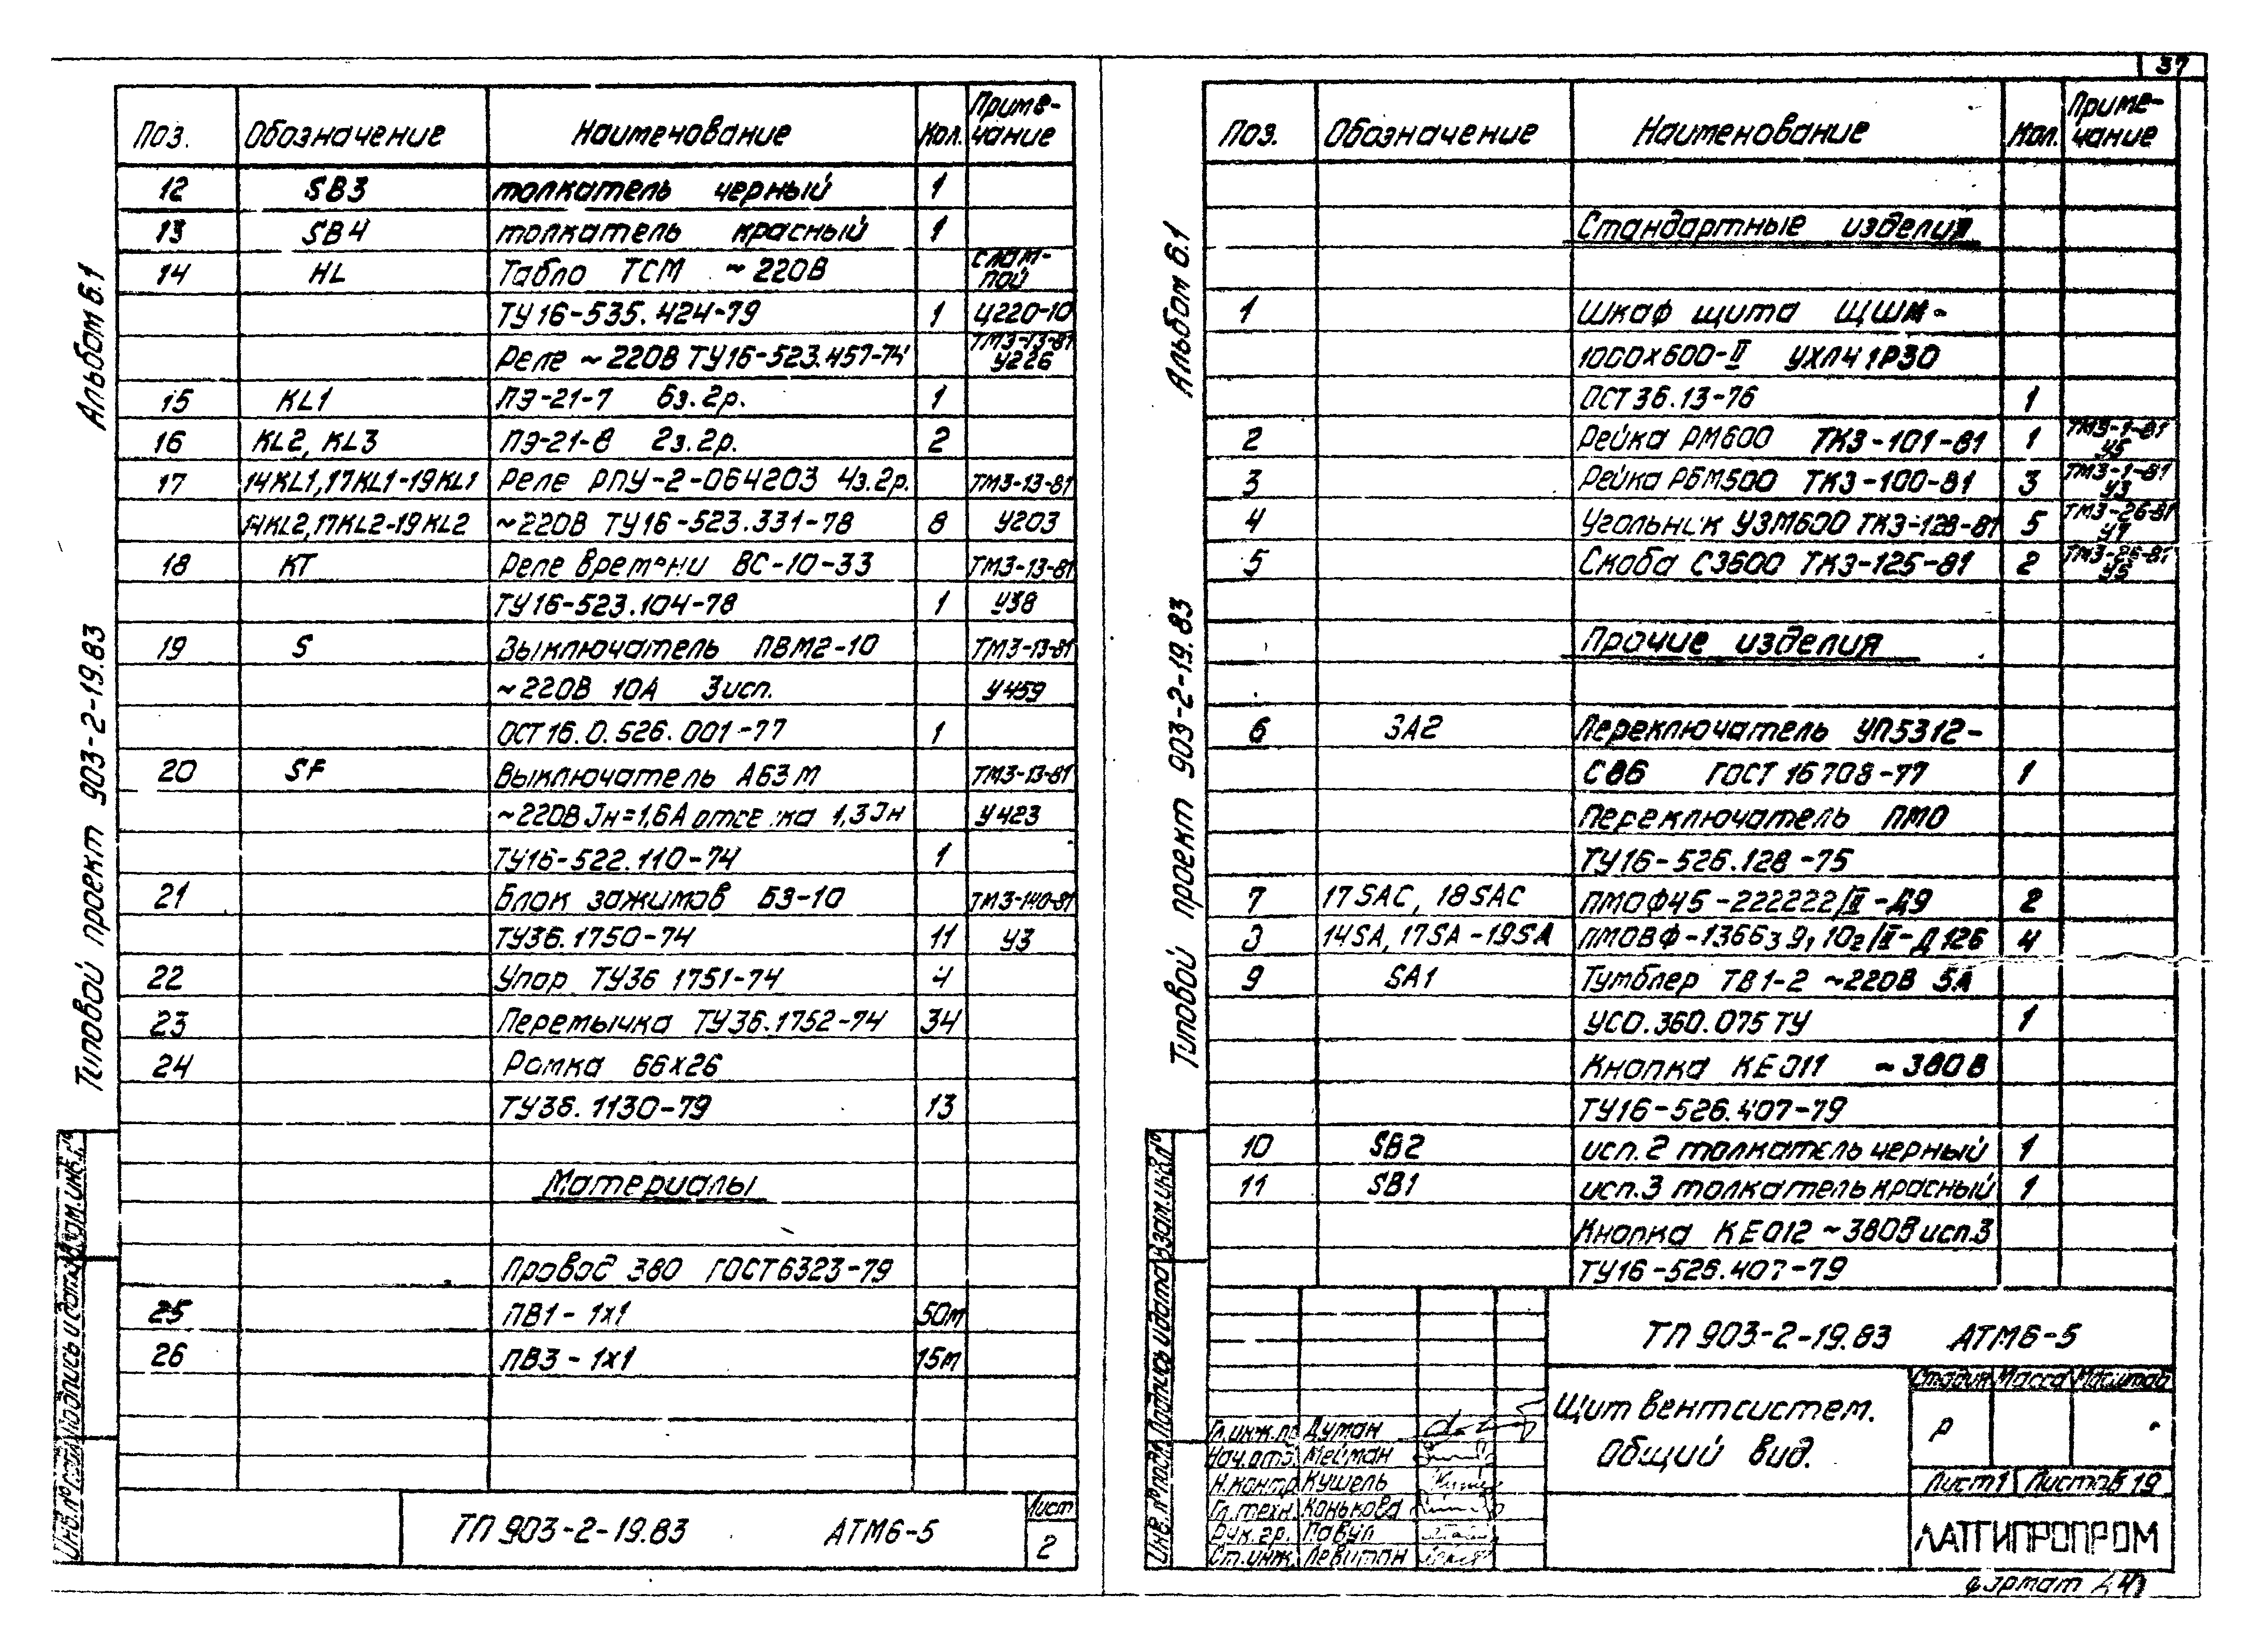 37
Альбом 6.1
Типовой проект 903-2-19.83
Поз. Обозначение Наименование Кол. Приме-
чание
12 SB3 толкатель черный 1
13 SB4 толкатель красный 1
14 HL Табло ТСМ ~220В с лам-
пой
ТУ16-535.424-79 1 Ц220-10
Реле ~220В ТУ16-523.457-74 ТМ3-13-81
У226
15 KL1 ПЭ-21-7 6з.2р. 1
16 KL2, KL3 ПЭ-21-8 2з.2р. 2
17 14KL1,17KL1-19KL1 Реле РПУ-2-064203 4з.2р. ТМ3-13-81
14KL2,17KL2-19KL2 ~220В ТУ16-523.331-78 8 У203
18 КТ Реле времени ВС-10-33 ТМ3-13-81
ТУ16-523.104-78 1 У38
19 S Выключатель ПВМ2-10 ТМ3-13-81
~220В 10А 3исп. У459
ОСТ16.0.526.001-77 1
20 SF Выключатель А63М ТМ3-13-81
~220В Jн=1,6А отсечка 1,3Jн У423
ТУ16-522.110-74 1
21 Блок зажимов БЗ-10 ТМ3-140-81
ТУ36.1750-74 11 У3
22 Упор ТУ36 1751-74 4
23 Перемычка ТУ36.1752-74 34
24 Рамка 66х26
ТУ36.1130-79 13
Материалы
Провод 380 ГОСТ6323-79
25 ПВ1-1х1 50м
26 ПВ3-1х1 15м
Инв.№подл. Подпись и дата Взам.инв.№
ТП 903-2-19.83 АТМ6-5
Лист
2
Альбом 6.1
Типовой проект 903-2-19.83
Поз. Обозначение Наименование Кол. Приме-
чание
Стандартные изделия
1 Шкаф щита ЩШМ-
1000х600-II УХЛ4 1Р30
ОСТ36.13-76 1
2 Рейка РМ600 ТК3-101-81 1 ТМ3-1-81
У5
3 Рейка РБМ500 ТК3-100-81 3 ТМ3-1-81
У3
4 Угольник УЗМ600 ТК3-128-81 5 ТМ3-26-81
У7
5 Скоба С3600 ТК3-125-81 2 ТМ3-26-81
У5
Прочие изделия
6 SA2 Переключатель УП5312-
С86 ГОСТ 16708-77 1
Переключатель ПМО
ТУ16-526.128-75
7 17SAC, 18SAC ПМОФ45-222222/II-Д9 2
8 14SA, 17SA-19SA ПМОВФ-1366з9,10г/II-Д126 4
9 SA1 Тумблер ТВ1-2 ~220В 5А
УСО.360.075ТУ 1
Кнопка КЕ011 ~380В
ТУ16-526.407-79
10 SB2 исп.2 толкатель черный 1
11 SB1 исп.3 толкатель красный 1
Кнопка КЕ012 ~380В исп.3
ТУ16-526.407-79
Инв.№подл. Подпись и дата Взам.инв.№
ТП 903-2-19.83 АТМ6-5
Щит вентсистем.
Общий вид.
Стадия Масса Масштаб
Р -
Лист1 Листов 19
ЛАТГИПРОПРОМ
Гл.инж.пр Думан
Нач.отд. Мейман
Н.контр. Кушель
Гл.техн. Конькова
Рук.гр. Павул
Ст.инж. Левитан
формат А4